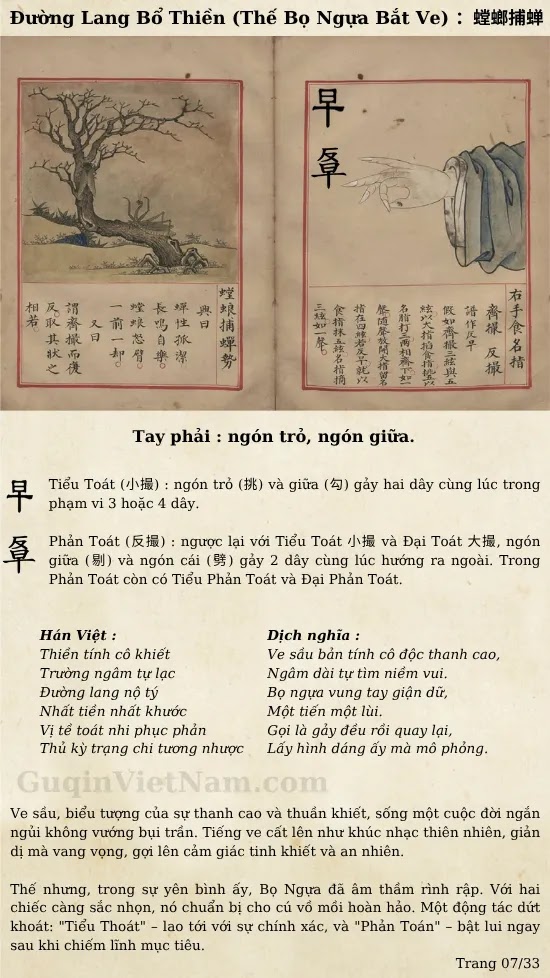 Đường Lang Bổ Thiền (Thế Bọ Ngựa Bắt Ve) : 螳螂捕蝉
右手食名指
齊撮 反撮
譜作反早
假如齊撮三絃與五
食指抹五絃名指摘
三絃如一聲
螳蜋捕蟬勢
興曰
蟬性孤潔
長鳴自樂。
螳蜋怒臂。
一前一却。
又曰
謂齊撮而復
反取其狀之
相若。
Tay phải : ngón trỏ, ngón giữa.
Tiểu Toát (小撮) : ngón trỏ (挑) và giữa (勾) gảy hai dây cùng lúc trong
phạm vi 3 hoặc 4 dây.
Phản Toát (反撮) : ngược lại với Tiểu Toát 小撮 và Đại Toát 大撮, ngón
giữa (剔) và ngón cái (劈) gảy 2 dây cùng lúc hướng ra ngoài. Trong
Phản Toát còn có Tiểu Phản Toát và Đại Phản Toát.
Hán Việt :
Thiền tính cô khiết
Trường ngâm tự lạc
Đường lang nộ tý
Nhất tiền nhất khước
Vị tề toát nhi phục phản
Thủ kỳ trạng chi tương nhược
Dịch nghĩa :
Ve sầu bản tính cô độc thanh cao,
Ngâm dài tự tìm niềm vui.
Bọ ngựa vung tay giận dữ,
Một tiến một lùi.
Gọi là gảy đều rồi quay lại,
Lấy hình dáng ấy mà mô phỏng.
GuqinVietNam.com
Ve sầu, biểu tượng của sự thanh cao và thuần khiết, sống một cuộc đời ngắn
ngủi không vướng bụi trần. Tiếng ve cất lên như khúc nhạc thiên nhiên, giản
dị mà vang vọng, gợi lên cảm giác tinh khiết và an nhiên.
Thế nhưng, trong sự yên bình ấy, Bọ Ngựa đã âm thầm rình rập. Với hai
chiếc càng sắc nhọn, nó chuẩn bị cho cú vồ mồi hoàn hảo. Một động tác dứt
khoát: "Tiểu Thoát" – lao tới với sự chính xác, và "Phản Toán" – bật lui ngay
sau khi chiếm lĩnh mục tiêu.
Trang 07/33